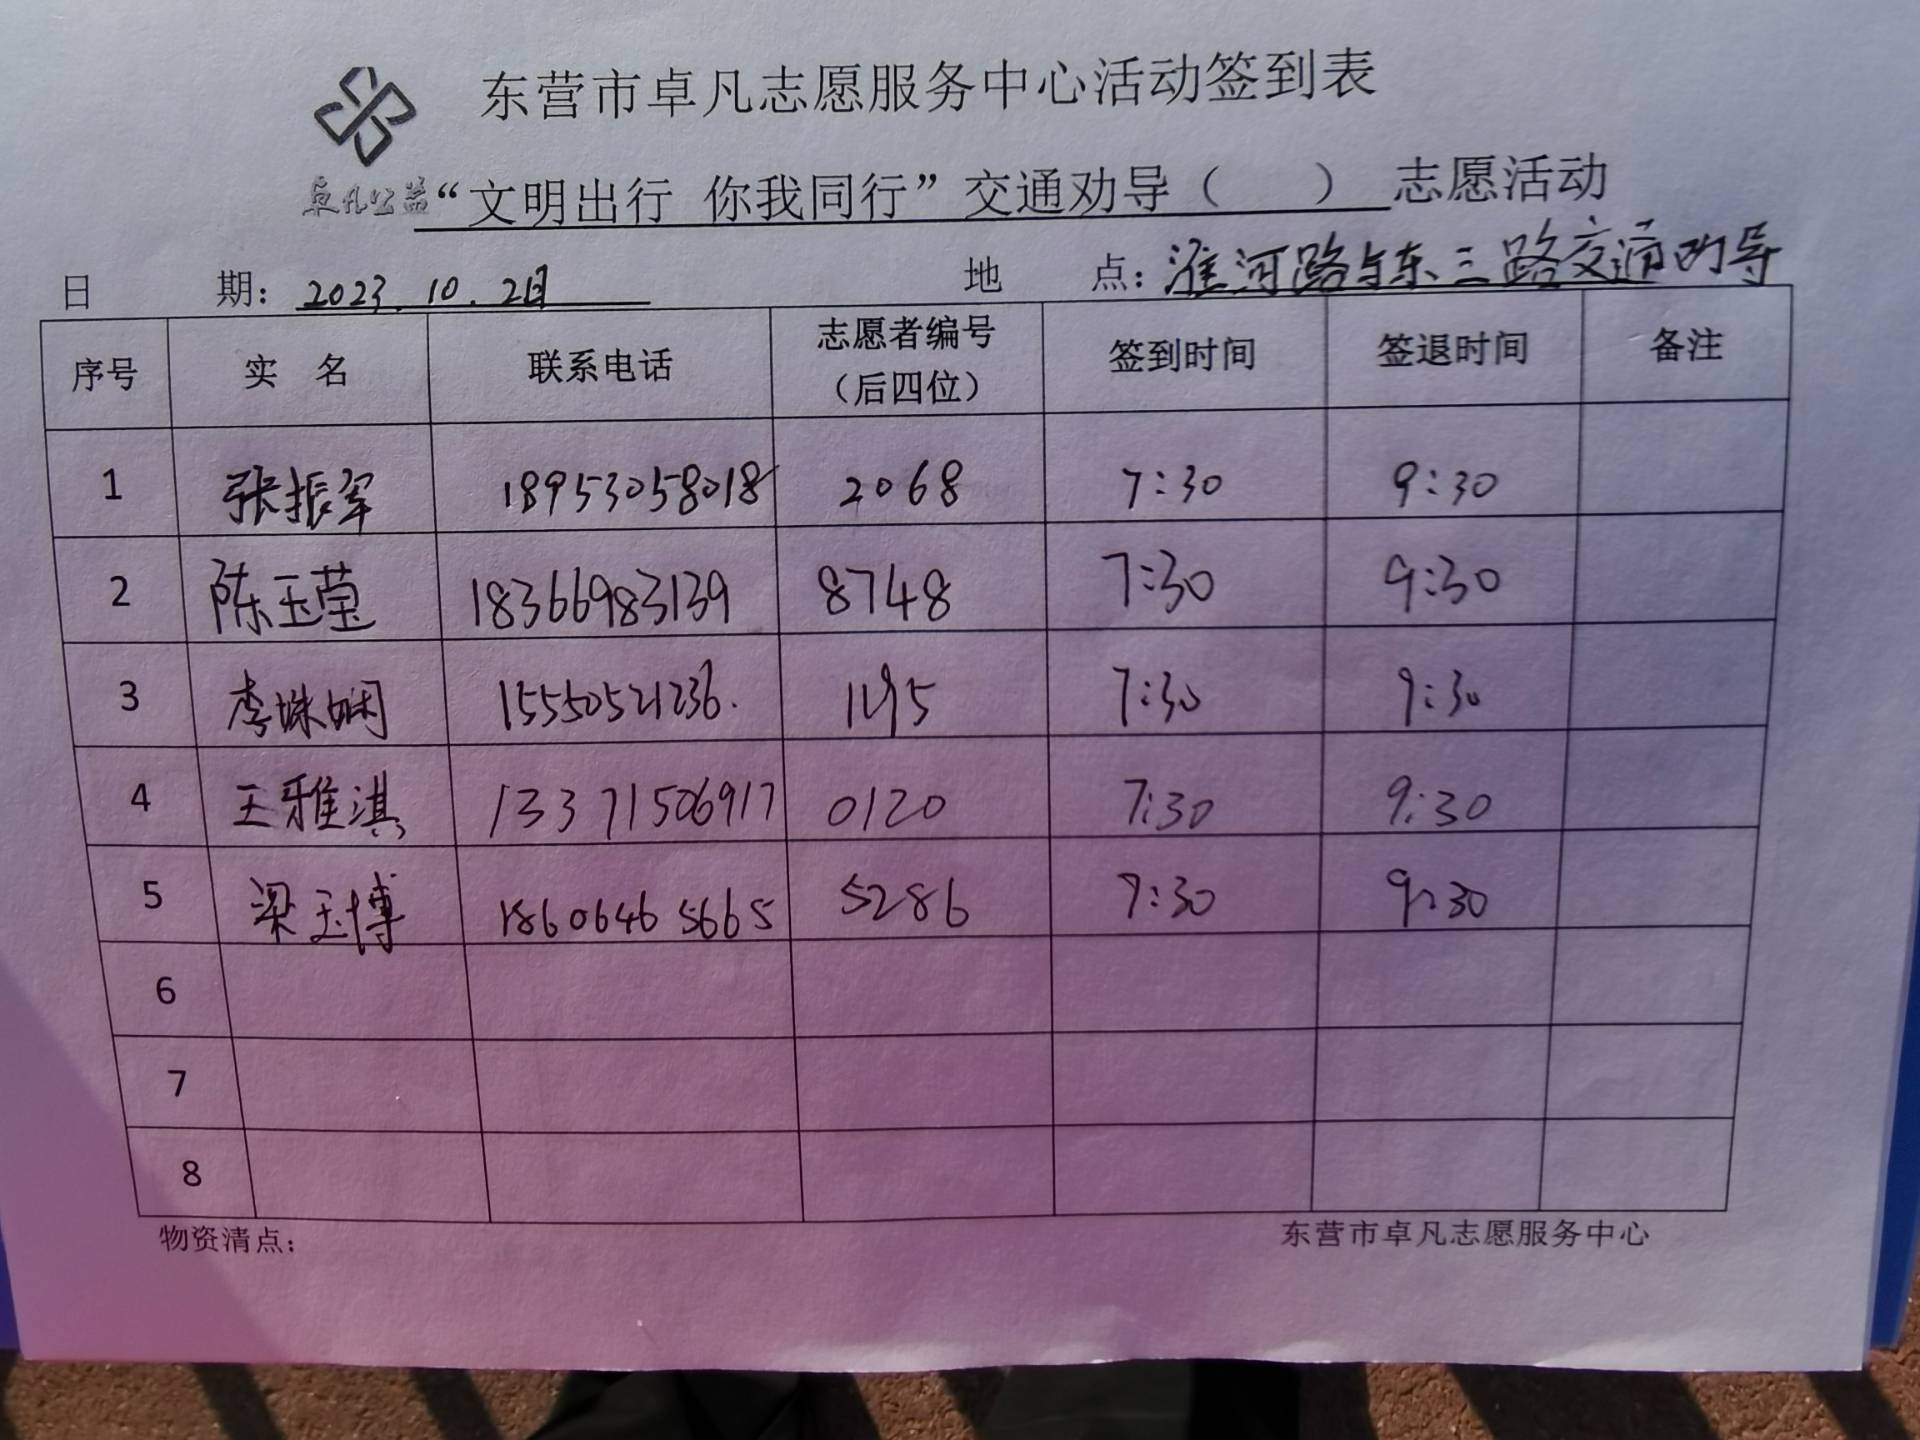 东营市卓凡志愿服务中心活动签到表
卓凡公益
“文明出行 你我同行”交通劝导（ ）志愿活动
日 期：2023.10.21日 地 点：淮河路与东三路交通劝导
序号 实 名 联系电话 志愿者编号（后四位） 签到时间 签退时间 备注
1 张振军 18953058018 2068 7:30 9:30
2 陈玉莹 18366983139 8748 7:30 9:30
3 李姝娴 15550521236. 1195 7:30 9:30
4 王雅淇 13371506917 0120 7:30 9:30
5 梁玉博 18606465665 5286 7:30 9:30
6
7
8
物资清点： 东营市卓凡志愿服务中心